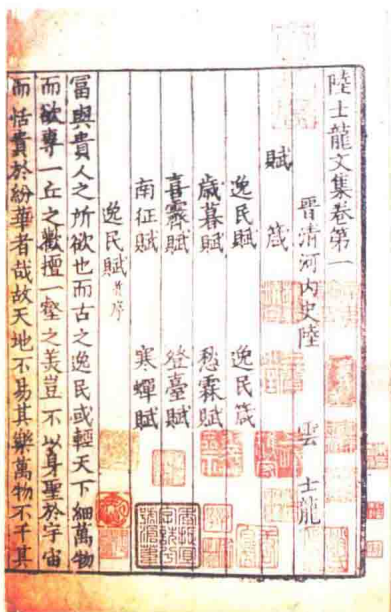 陸士龍文集卷第一
晉清河內史陸 雲 士龍
賦 箴
逸民賦 逸民箴
歲暮賦 愁霖賦
喜霽賦 登臺賦
南征賦 寒蟬賦
逸民賦 并序
冨與貴人之所欲也而古之逸民或輕天下細萬物
而欲專一丘之歡擅一壑之美豈不以身聖於宇宙
而恬貴於紛華者哉故天地不易其樂萬物不干其